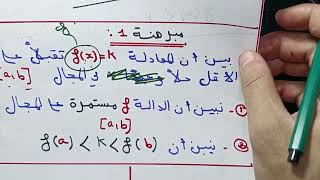 مبرهنة 1 :
نبين أن المعادلة f(x)=k تقبل
الأقل حلاً في المجال [a,b]
1- نبين أن الدالة f مستمرة على المجال
[a,b]
2- نبين أن f(a) < k < f(b)